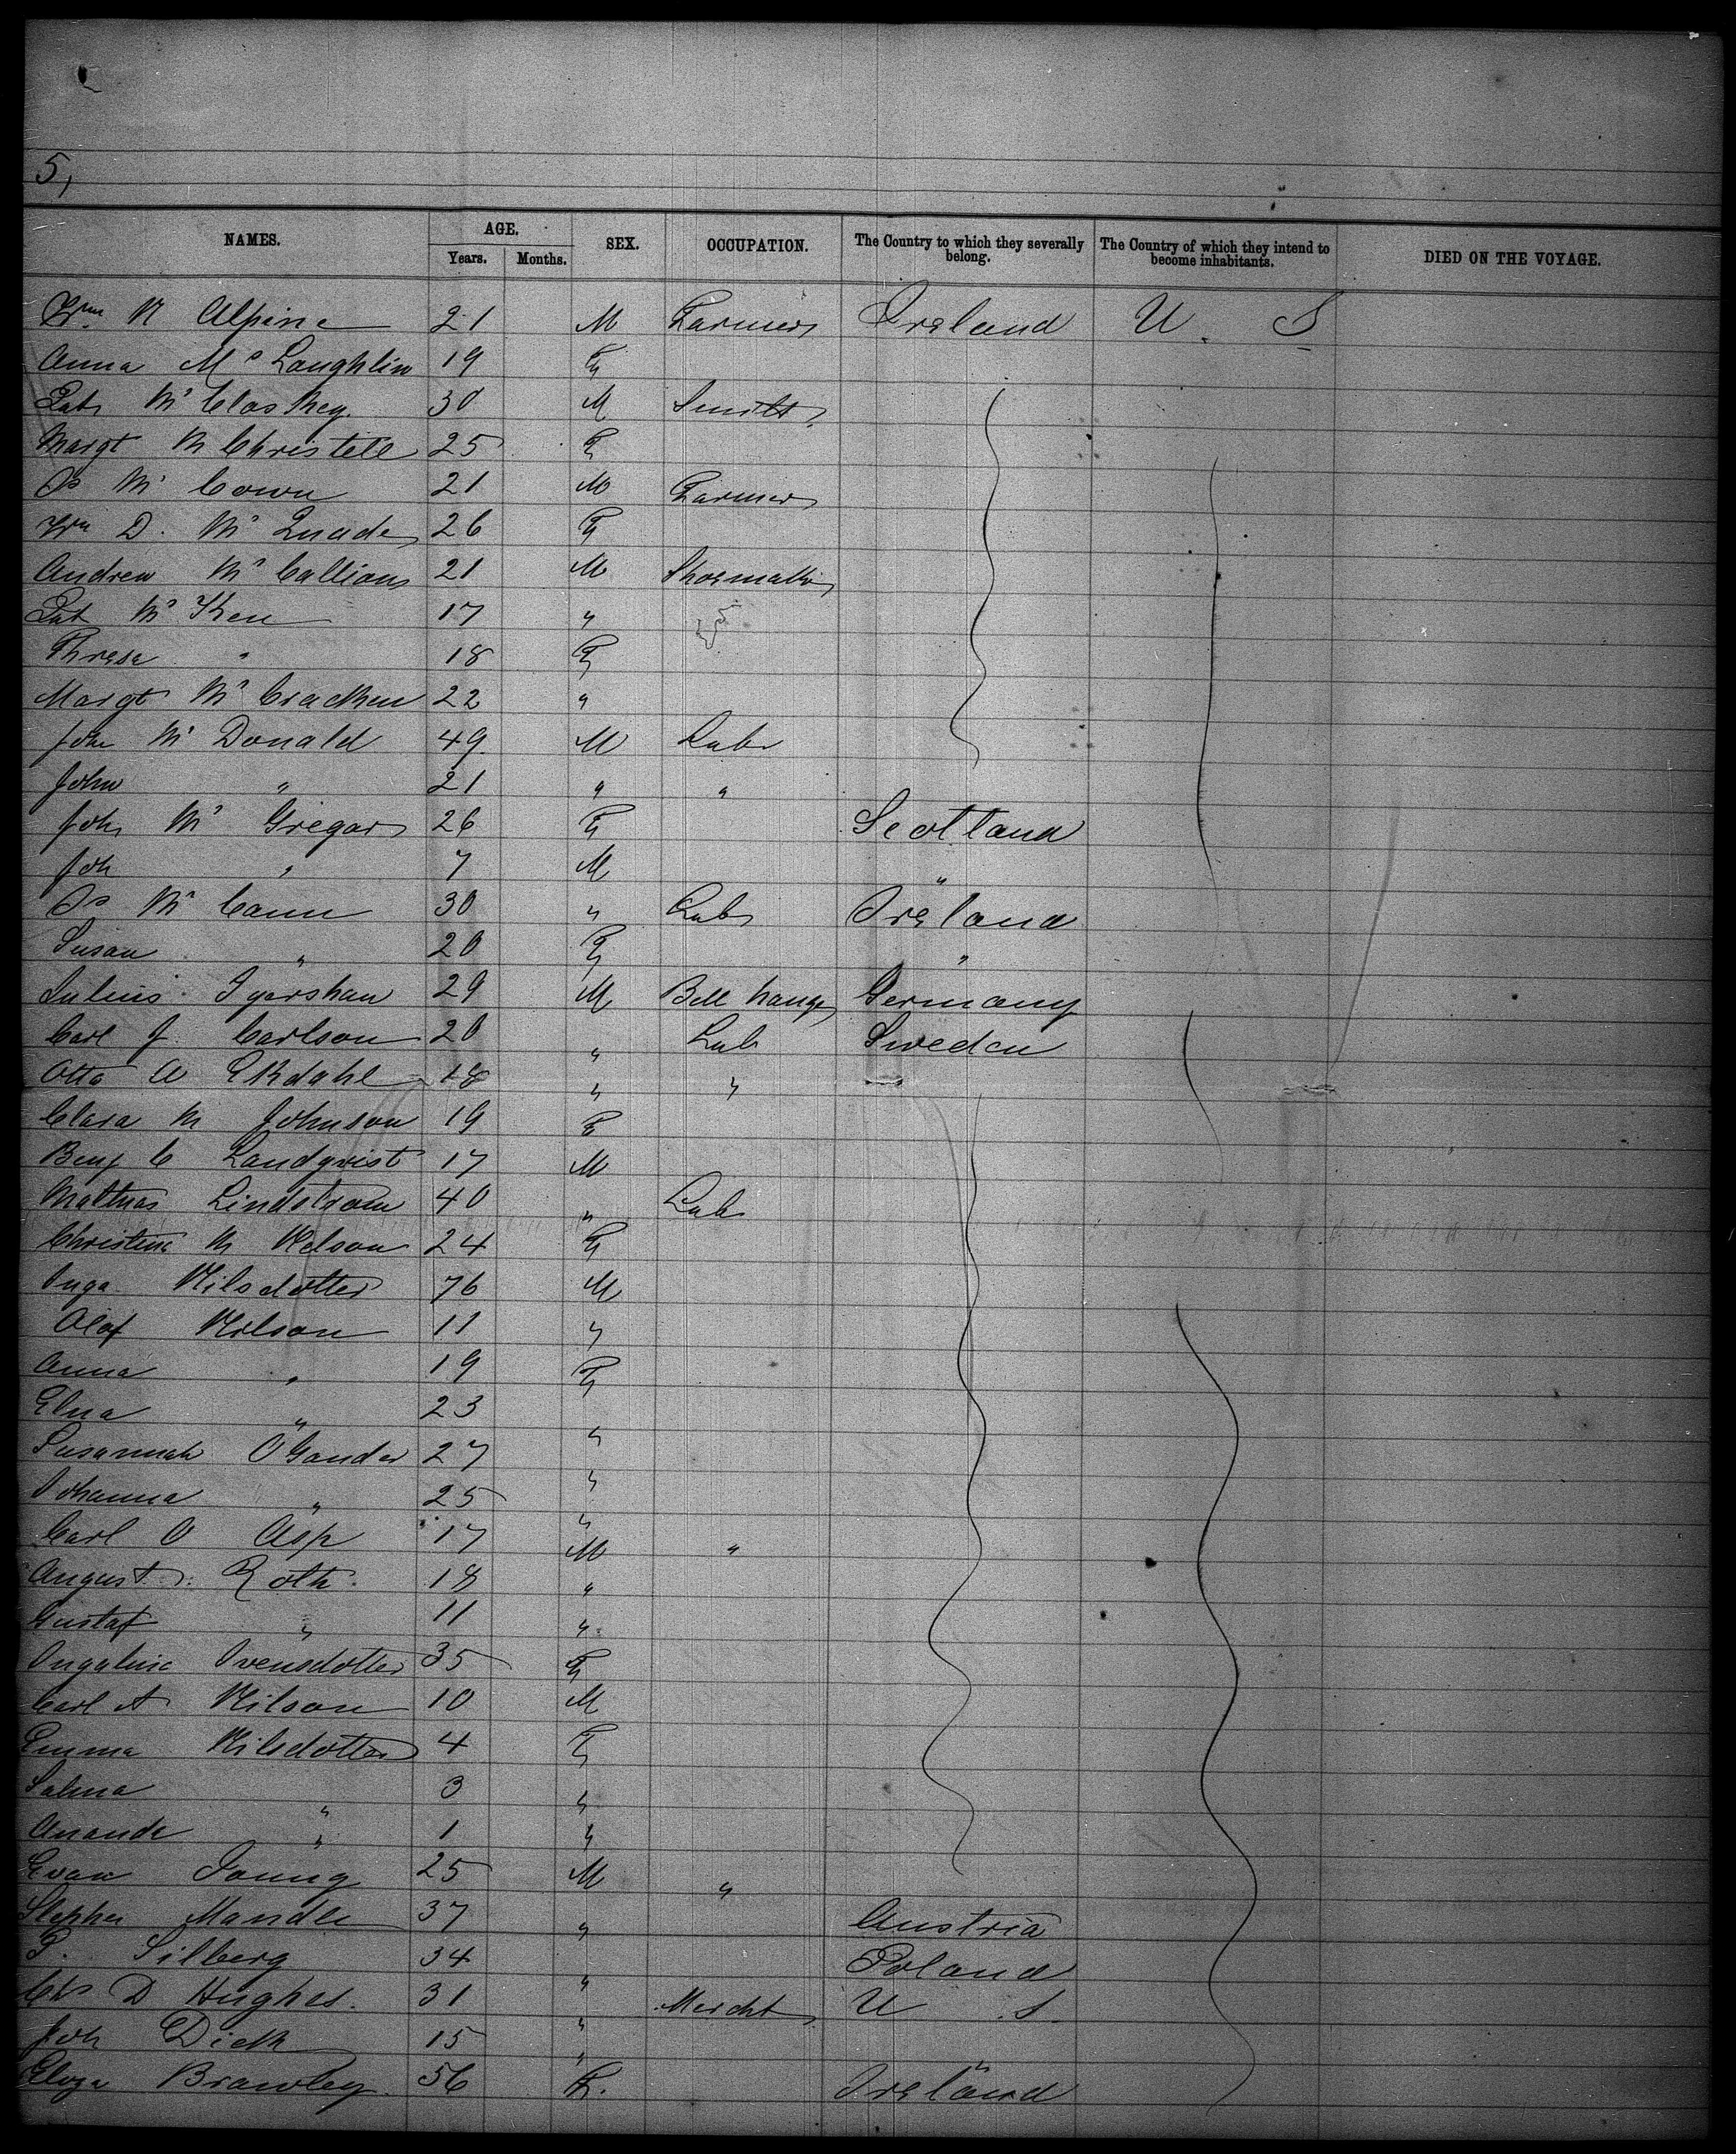 5,
NAMES. AGE. SEX. OCCUPATION. The Country to which they severally belong. The Country of which they intend to become inhabitants. DIED ON THE VOYAGE.
Years. Months.
Wm M Alpine 21 M Farmer Ireland U. S
Anna Mc Laughlin 19 F
Pat Mc Closkey. 30 M Smith
Margt M Christell 25 F
Js Mc Cown 21 M Farmer
Wm D. Mc Quade 26 F
Andrew Mc Callions 21 M Shoemaker
Pat Mc Ken 17 "
Thresa " 18 F
Margt Mc Cracken 22 "
John Mc Donald 49 M Labr
John " 21 " "
Joh Mc Gregor 26 F Scotland
Joh " 7 M "
Js Mc Cann 30 " Labr Ireland
Susan " 20 F "
Julius 29 M Bell hanger Germany
Carl J. Carlson 20 " Lab Sweden
Otto A Ekdahl 18 " "
Clara M Johnson 19 F
Benj C Landqvist 17 M
Mathias Lindstrom 40 " Labr
Christine M Nelson 24 F
Inga Nilsdotter 76 M
Olof Nilson 11 "
Anna " 19 F
Elna " 23 "
Susannah O'Gander 27 "
Johanna " 25 "
Carl O Asp 17 M "
August Roth. 18 "
Gustaf " 11 "
Ingaline Svensdotter 35 F
Carl A Nilson 10 M
Emma Nilsdotter 4 F
Salma " 3 "
Amanda " 1 "
Evan Young 25 M "
Stephen Mandle 37 " Austria
P. Silberg 34 " Poland
Chs D Hughes. 31 " Mercht U S.
Joh Dick 15 " "
Eliza Brawley 56 F. Ireland